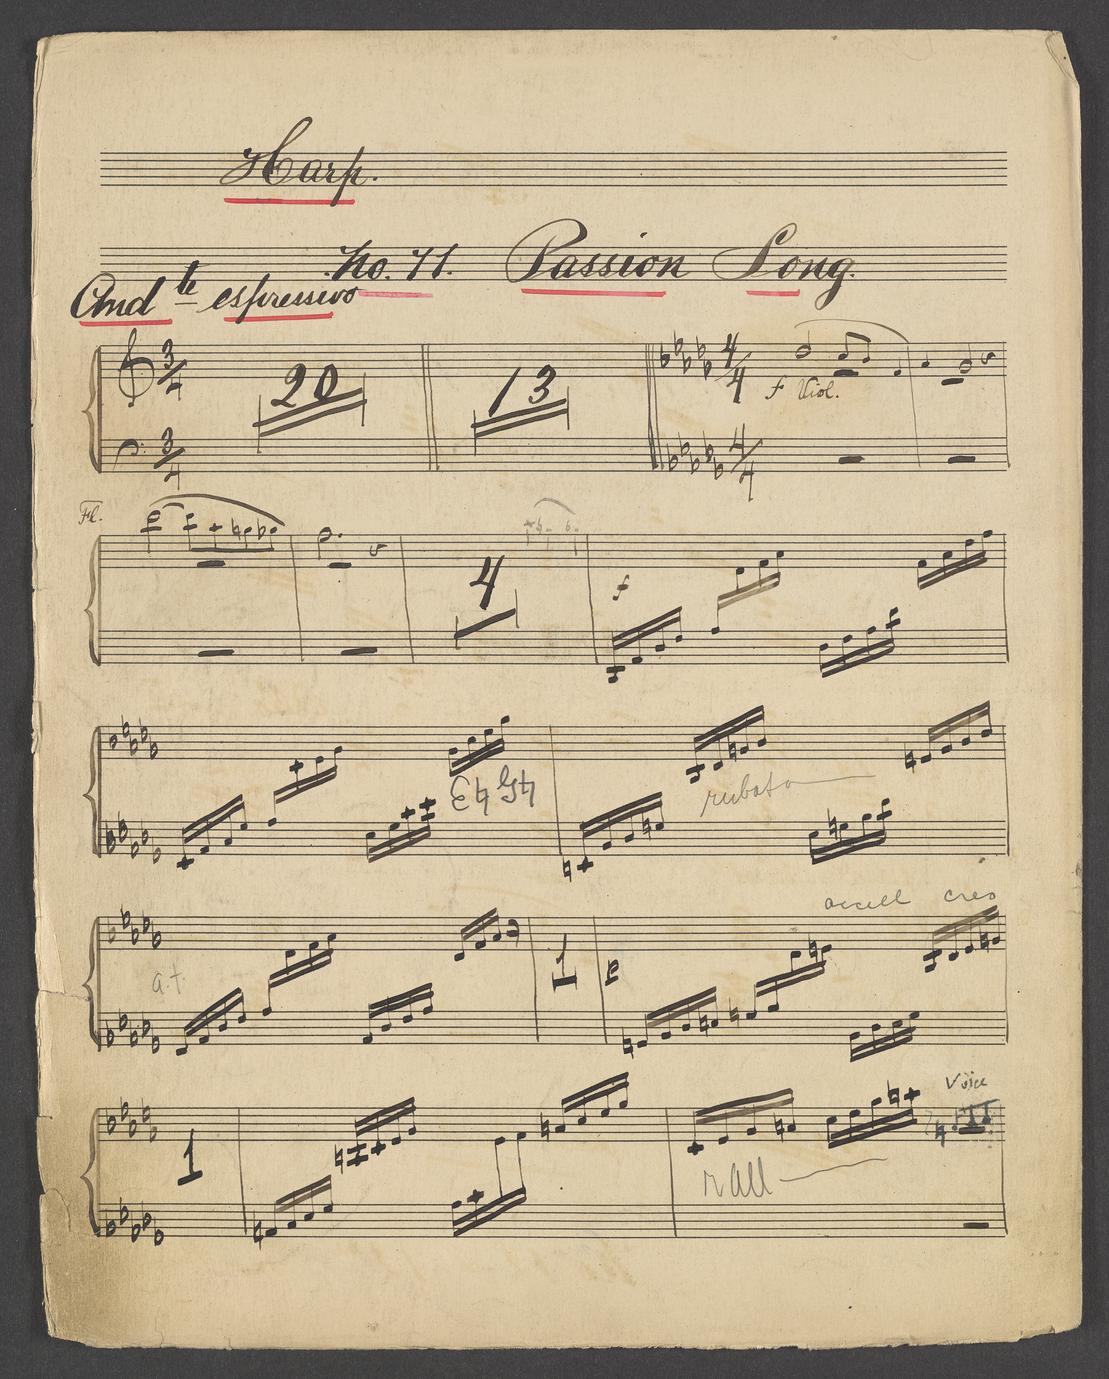 Harp.
No. 11. Passion Song.
And te espressivo
3/4 20 13 4/4 f Viol.
3/4 4/4
Fl.
4 f
E♮ G♮ rubato
accell cres
a.t. 1 p
Voice
1 rall